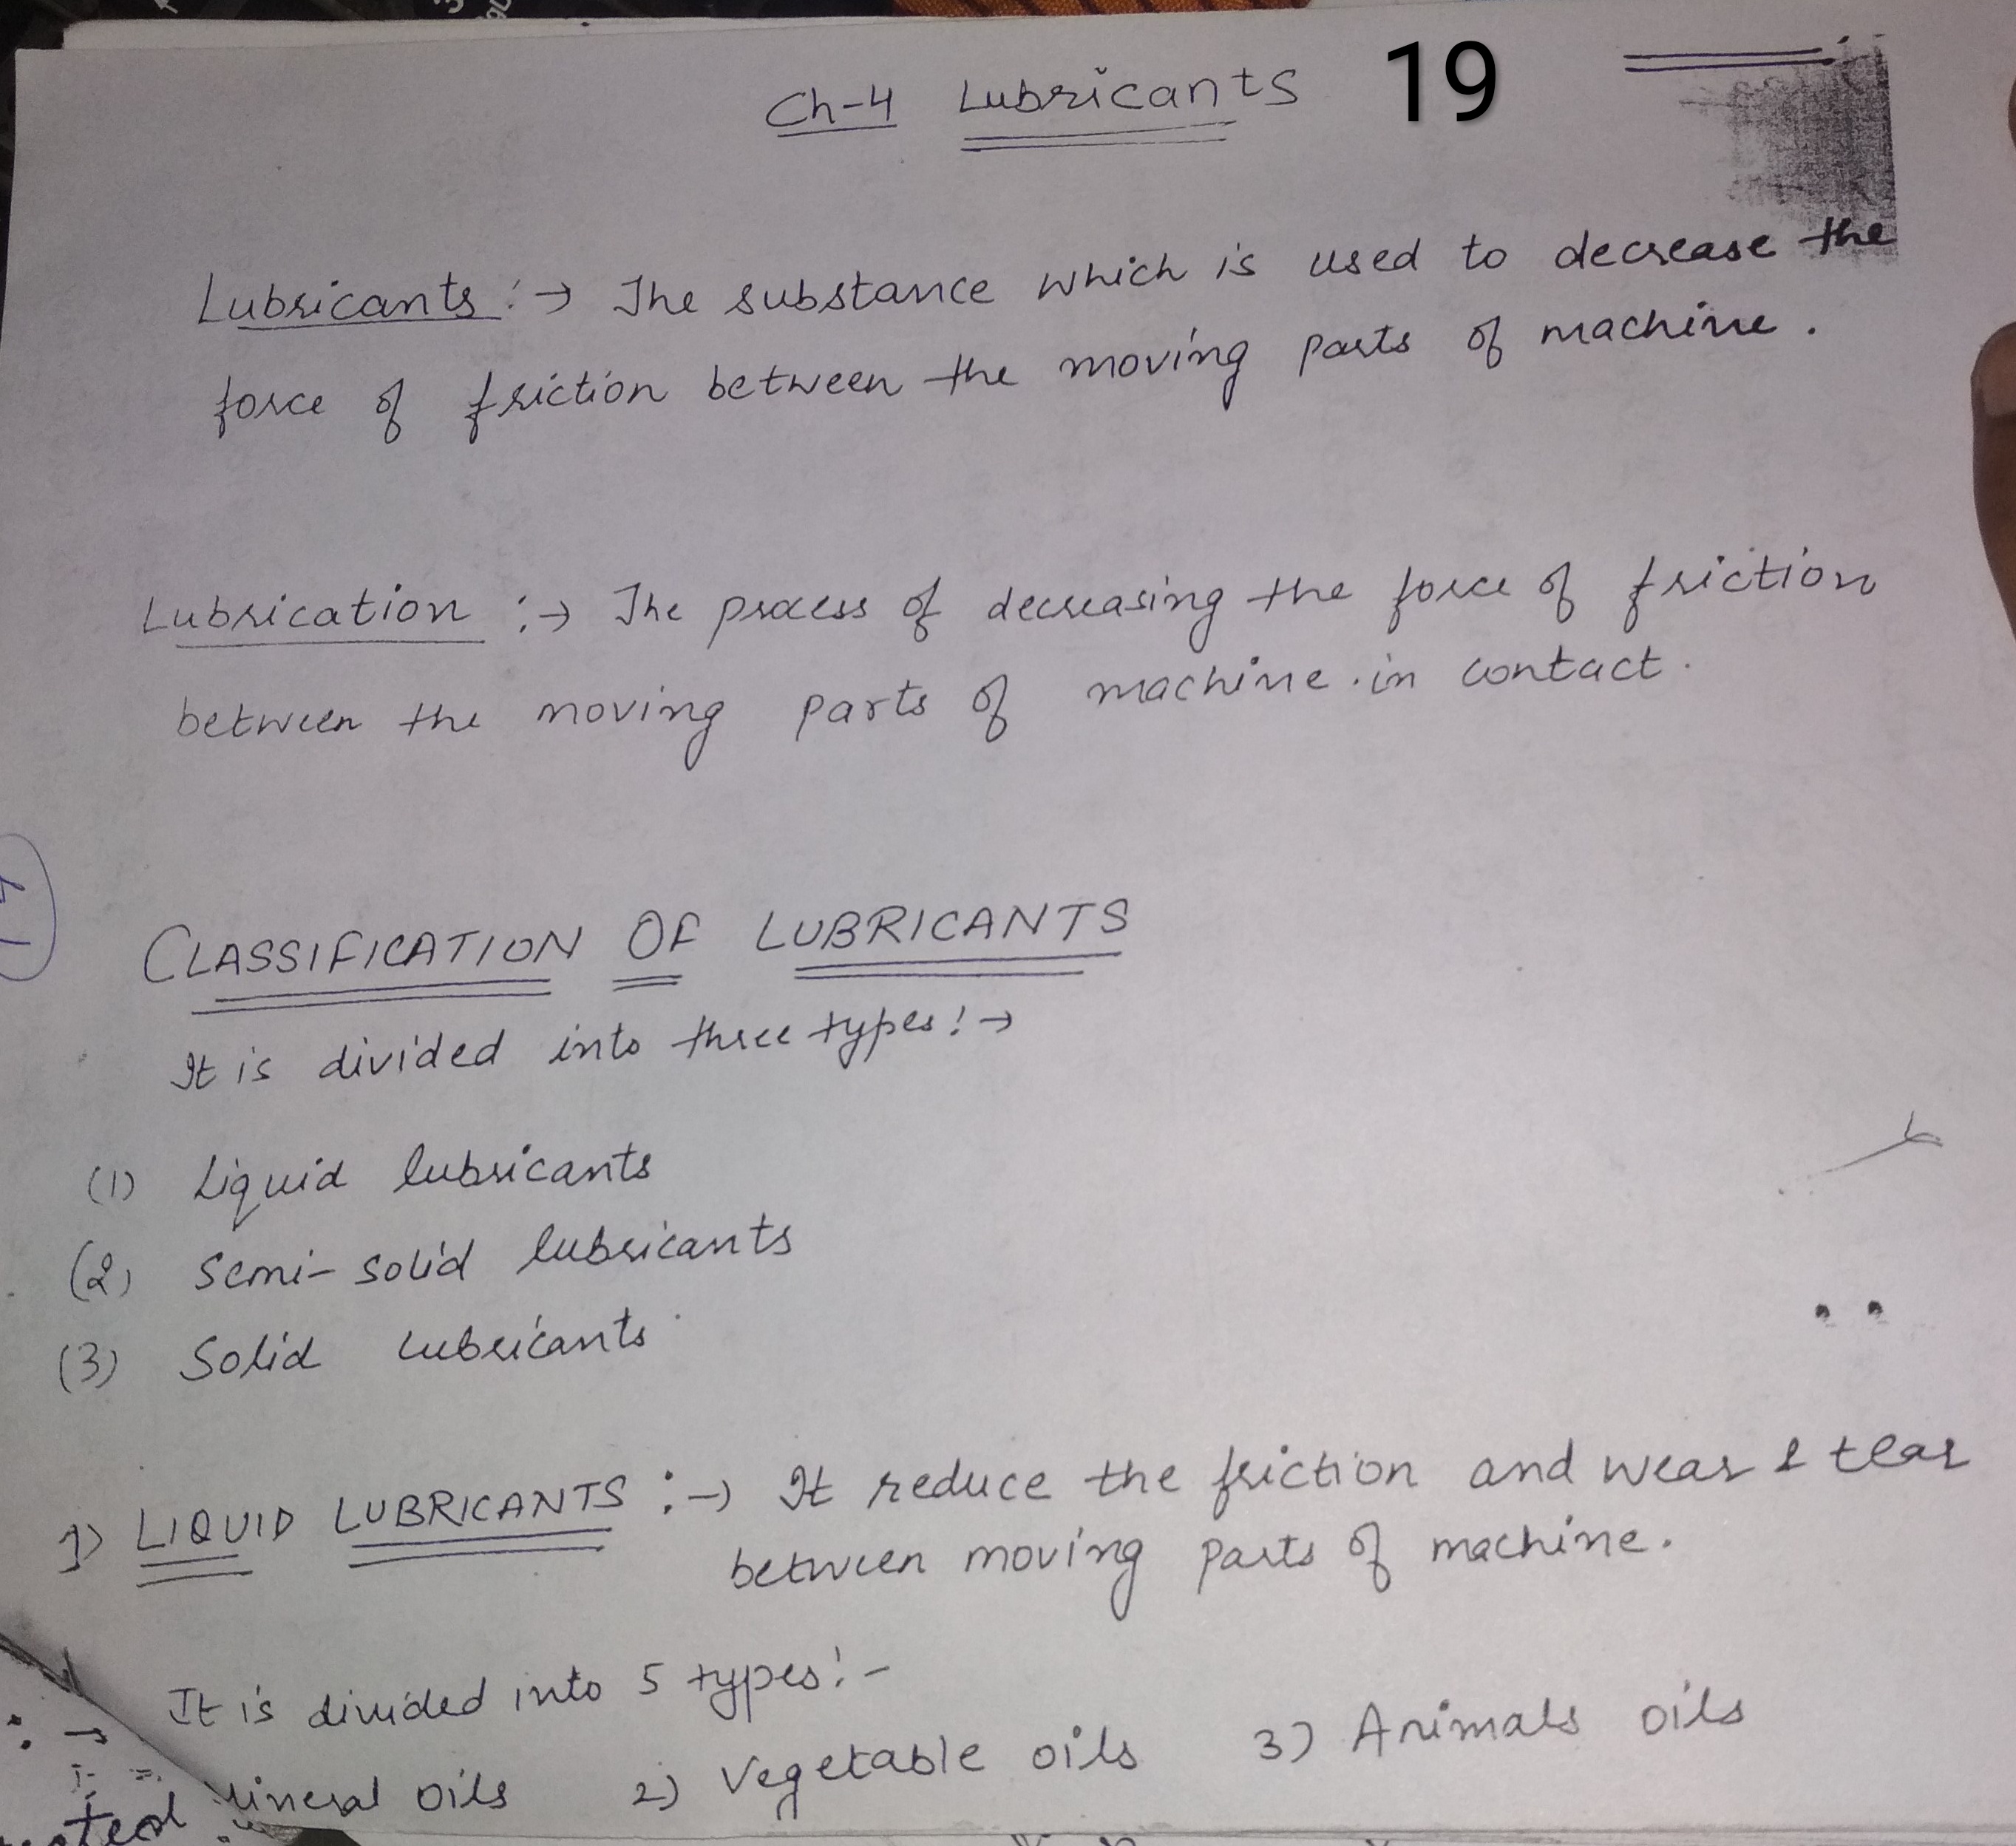 Ch-4 Lubricants 19
Lubricants :→ The substance which is used to decrease the
force of friction between the moving parts of machine.
Lubrication :→ The process of decreasing the force of friction
between the moving parts of machine in contact.
CLASSIFICATION OF LUBRICANTS
It is divided into three types:→
(1) Liquid lubricants
(2) Semi-solid lubricants
(3) Solid lubricants
1) LIQUID LUBRICANTS :→ It reduce the friction and wear & tear
between moving parts of machine.
It is divided into 5 types:-
Mineral oils 2) Vegetable oils 3) Animals oils